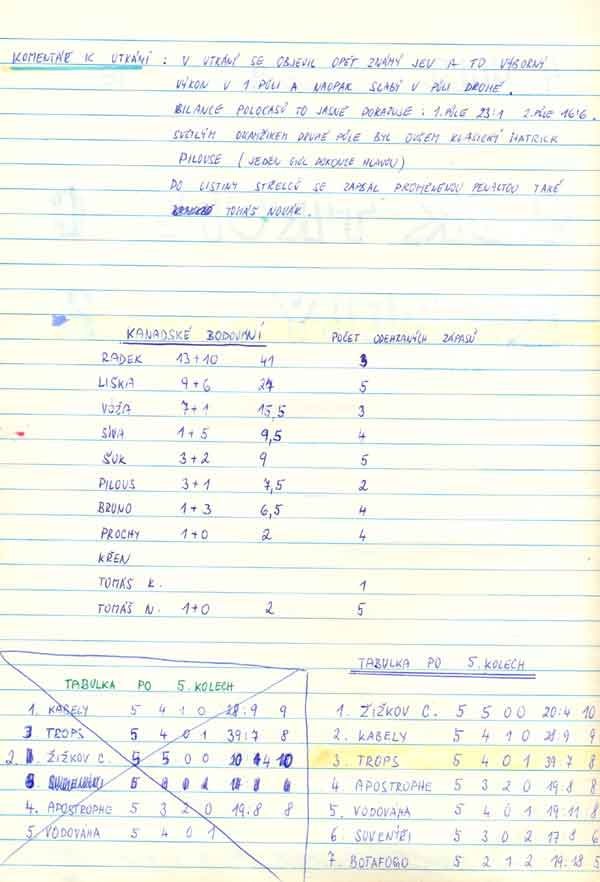 KOMENTÁŘ K UTKÁNÍ : V UTKÁNÍ SE OBJEVIL OPĚT ZNÁMÝ JEV A TO VÝBORNÝ
VÝKON V 1 PŮLI A NAOPAK SLABÝ V PŮLI DRUHÉ.
BILANCE POLOČASŮ TO JASNĚ DOKAZUJE : 1. PŮLE 23:1 2. PŮLE 16:6.
SVĚTLÝM OKAMŽIKEM DRUHÉ PŮLE BYL OVŠEM KLASICKÝ HATRICK
PILOUSE (JEDEN GÓL DOKONCE HLAVOU)
DO LISTINY STŘELCŮ SE ZAPSAL PROMĚNĚNOU PENALTOU TAKÉ
TOMÁŠ NOVÁK.
KANADSKÉ BODOVÁNÍ POČET ODEHRANÝCH ZÁPASŮ
RADEK 13+10 41 3
LIŠKA 9+6 27 5
VOŽA 7+1 15,5 3
SÍVA 1+5 9,5 4
ŠUK 3+2 9 5
PILOUS 3+1 7,5 2
BRUNO 1+3 6,5 4
PROCHY 1+0 2 4
KŘEN
TOMÁŠ K. 1
TOMÁŠ N. 1+0 2 5
TABULKA PO 5. KOLECH
1. KABELY 5 4 1 0 28:9 9
3 TROPS 5 4 0 1 39:7 8
2. ŽIŽKOV C. 5 5 0 0 20:4 10
SUVENÍRI 5
4. APOSTROPHE 5 3 2 0 19:8 8
5. VODOVÁHA 5 4 0 1
TABULKA PO 5. KOLECH
1. ŽIŽKOV C. 5 5 0 0 20:4 10
2. KABELY 5 4 1 0 28:9 9
3. TROPS 5 4 0 1 39:7 8
4 APOSTROPHE 5 3 2 0 19:8 8
5. VODOVÁHA 5 4 0 1 19:11 8
6. SUVENÍŘI 5 3 0 2 17:8 6
7. BOTAFOGO 5 2 1 2 19:18 5